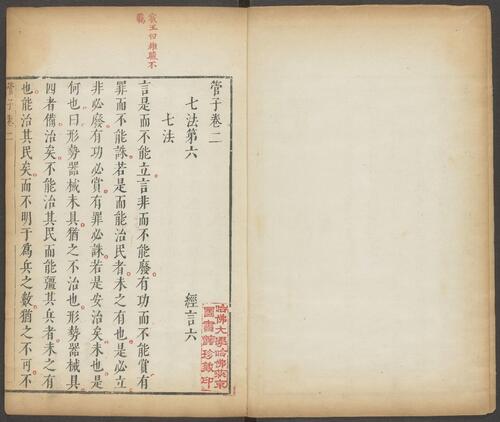 管子卷二
七法第六 經言六
七法
言是而不能立言非而不能廢有功而不能賞有
罪而不能誅若是而能治民者未之有也是必立
非必廢有功必賞有罪必誅若是安治矣未也是
何也曰形勢器械未具猶之不治也形勢器械具
四者備治矣不能治其民而能彊其兵者未之有
也能治其民矣而不明于爲兵之數猶之不可不
管子卷二
哈佛大學哈佛燕京
圖書館珍藏印